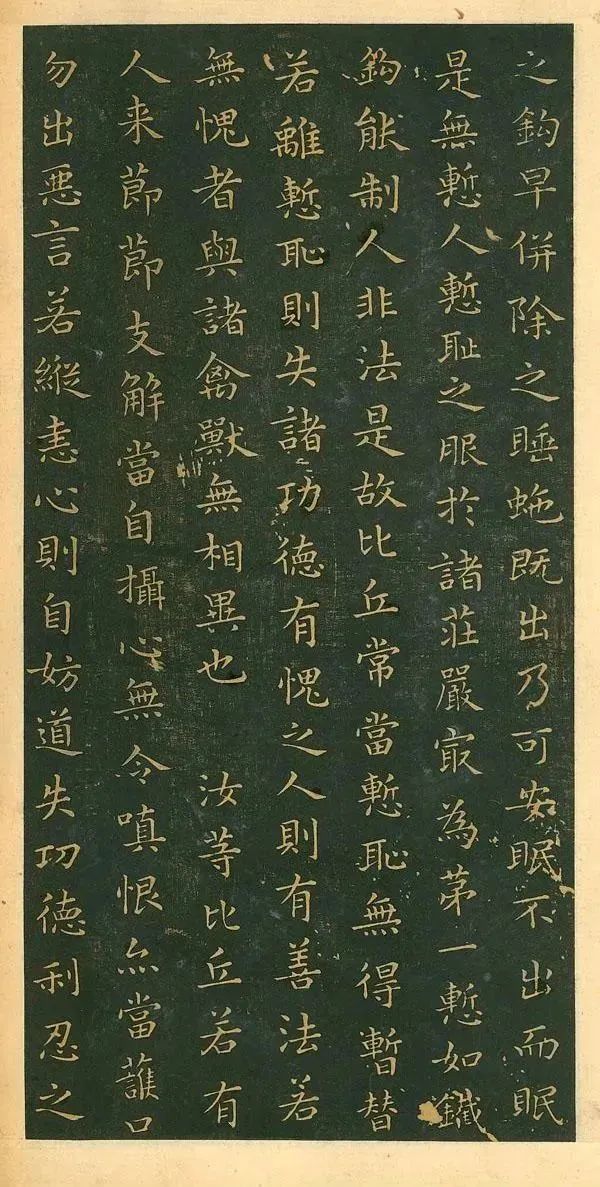 之鈎早併除之睡虵既出乃可安眠不出而眠
是無慙人慙耻之服於諸莊嚴冣為苐一慙如鐵
鈎能制人非法是故比丘常當慙恥無得暫替
若離慙恥則失諸功德有愧之人則有善法若
無愧者與諸禽獸無相異也 汝等比丘若有
人来節節支解當自攝心無令嗔恨亦當護口
勿出惡言若縱恚心則自妨道失功德利忍之